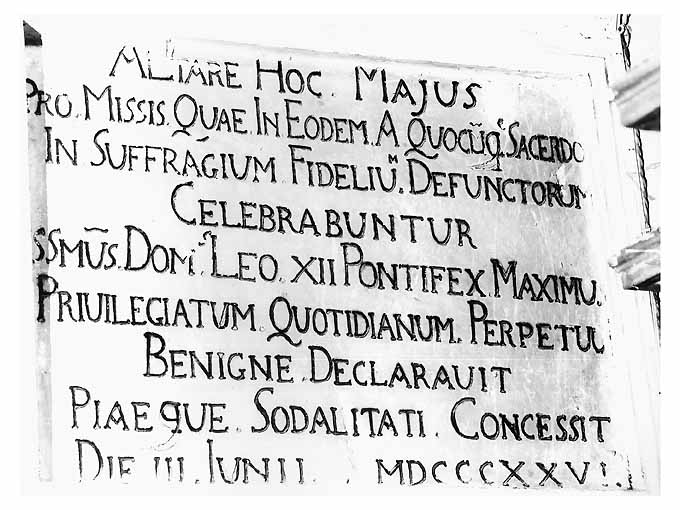 ALTARE HOC. MAJUS
PRO. MISSIS. QUAE. IN EODEM. A QUOCŨQ. SACERDO
IN SUFFRAGIUM FIDELIUM. DEFUNCTORUM
CELEBRABUNTUR
SSMŨS. DOM. LEO. XII PONTIFEX. MAXIMU.
PRIUILEGIATUM. QUOTIDIANUM. PERPETUU
BENIGNE. DECLARAUIT
PIAEQUE. SODALITATI. CONCESSIT
DIE III. IUNII. MDCCCXXVI.